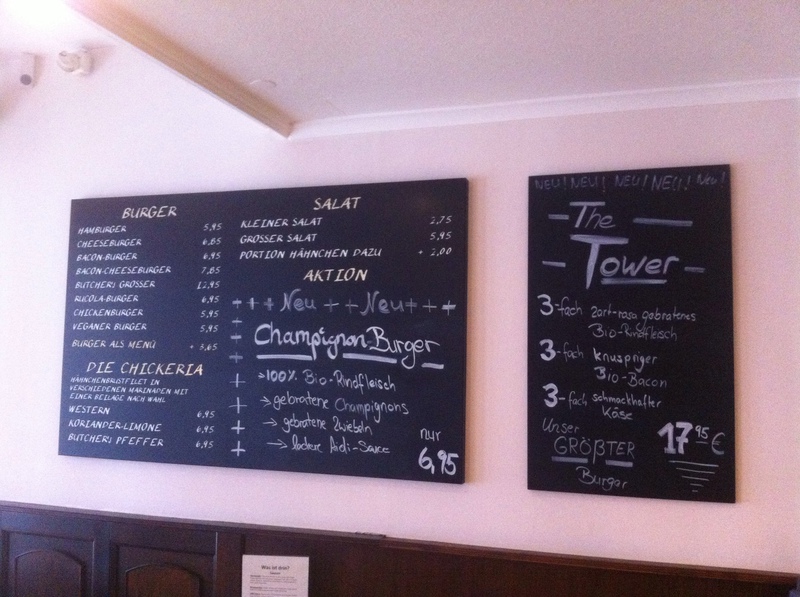 BURGER
HAMBURGER 5,95
CHEESEBURGER 6,85
BACON-BURGER 6,95
BACON-CHEESEBURGER 7,85
BUTCHERI GROSSER 12,95
RUCOLA-BURGER 6,95
CHICKENBURGER 5,95
VEGANER BURGER 5,95
BURGER ALS MENÜ + 3,65
DIE CHICKERIA
HÄHNCHENBRUSTFILET IN
VERSCHIEDENEN MARINADEN MIT
EINER BEILAGE NACH WAHL
WESTERN 6,95
KORIANDER-LIMONE 6,95
BUTCHERI PFEFFER 6,95
SALAT
KLEINER SALAT 2,75
GROSSER SALAT 5,95
PORTION HÄHNCHEN DAZU + 2,00
AKTION
+ + + Neu + + Neu + + +
Champignon-Burger
→ 100% Bio-Rindfleisch
→ gebratene Champignons
→ gebratene Zwiebeln
→ lockere Aioli-Sauce
nur
6,95
NEU! NEU! NEU! NEU! Neu!
The
Tower
3-fach zart-rosa gebratenes
Bio-Rindfleisch
3-fach knuspriger
Bio-Bacon
3-fach schmackhafter
Käse
Unser
GRÖßTER
Burger
17,95 €
Was ist drin?